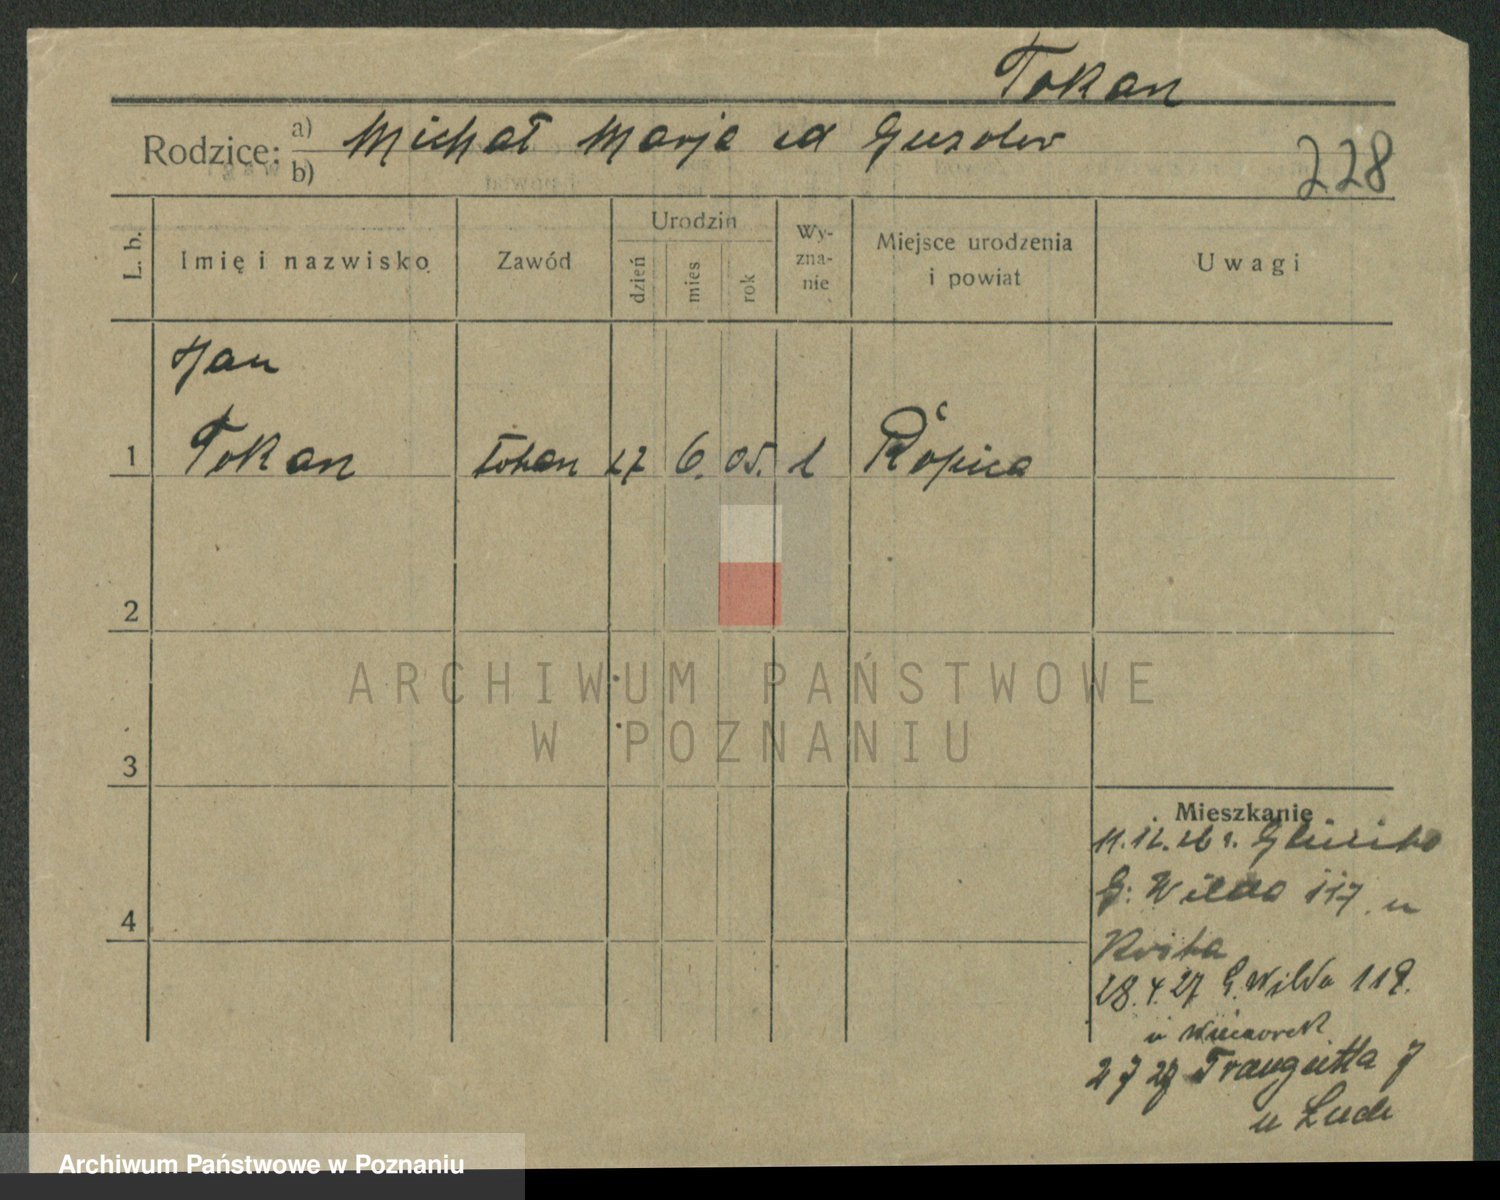 Tokan
Rodzice: a) Michał Marja
b)
228
L. b.
Imię i nazwisko
Zawód
Urodzin
dzień
mies
rok
Wy-
zna-
nie
Miejsce urodzenia
i powiat
Uwagi
Jan
1 Tokan 27 6. 05. Rópica
2
3
4
Mieszkanie
11.12.26 r.
G. Wilda 117 u
28.4.27 G. Wilda 119.
u
2 7 27 Traugutta 7
u
ARCHIWUM PAŃSTWOWE
W POZNANIU
Archiwum Państwowe w Poznaniu